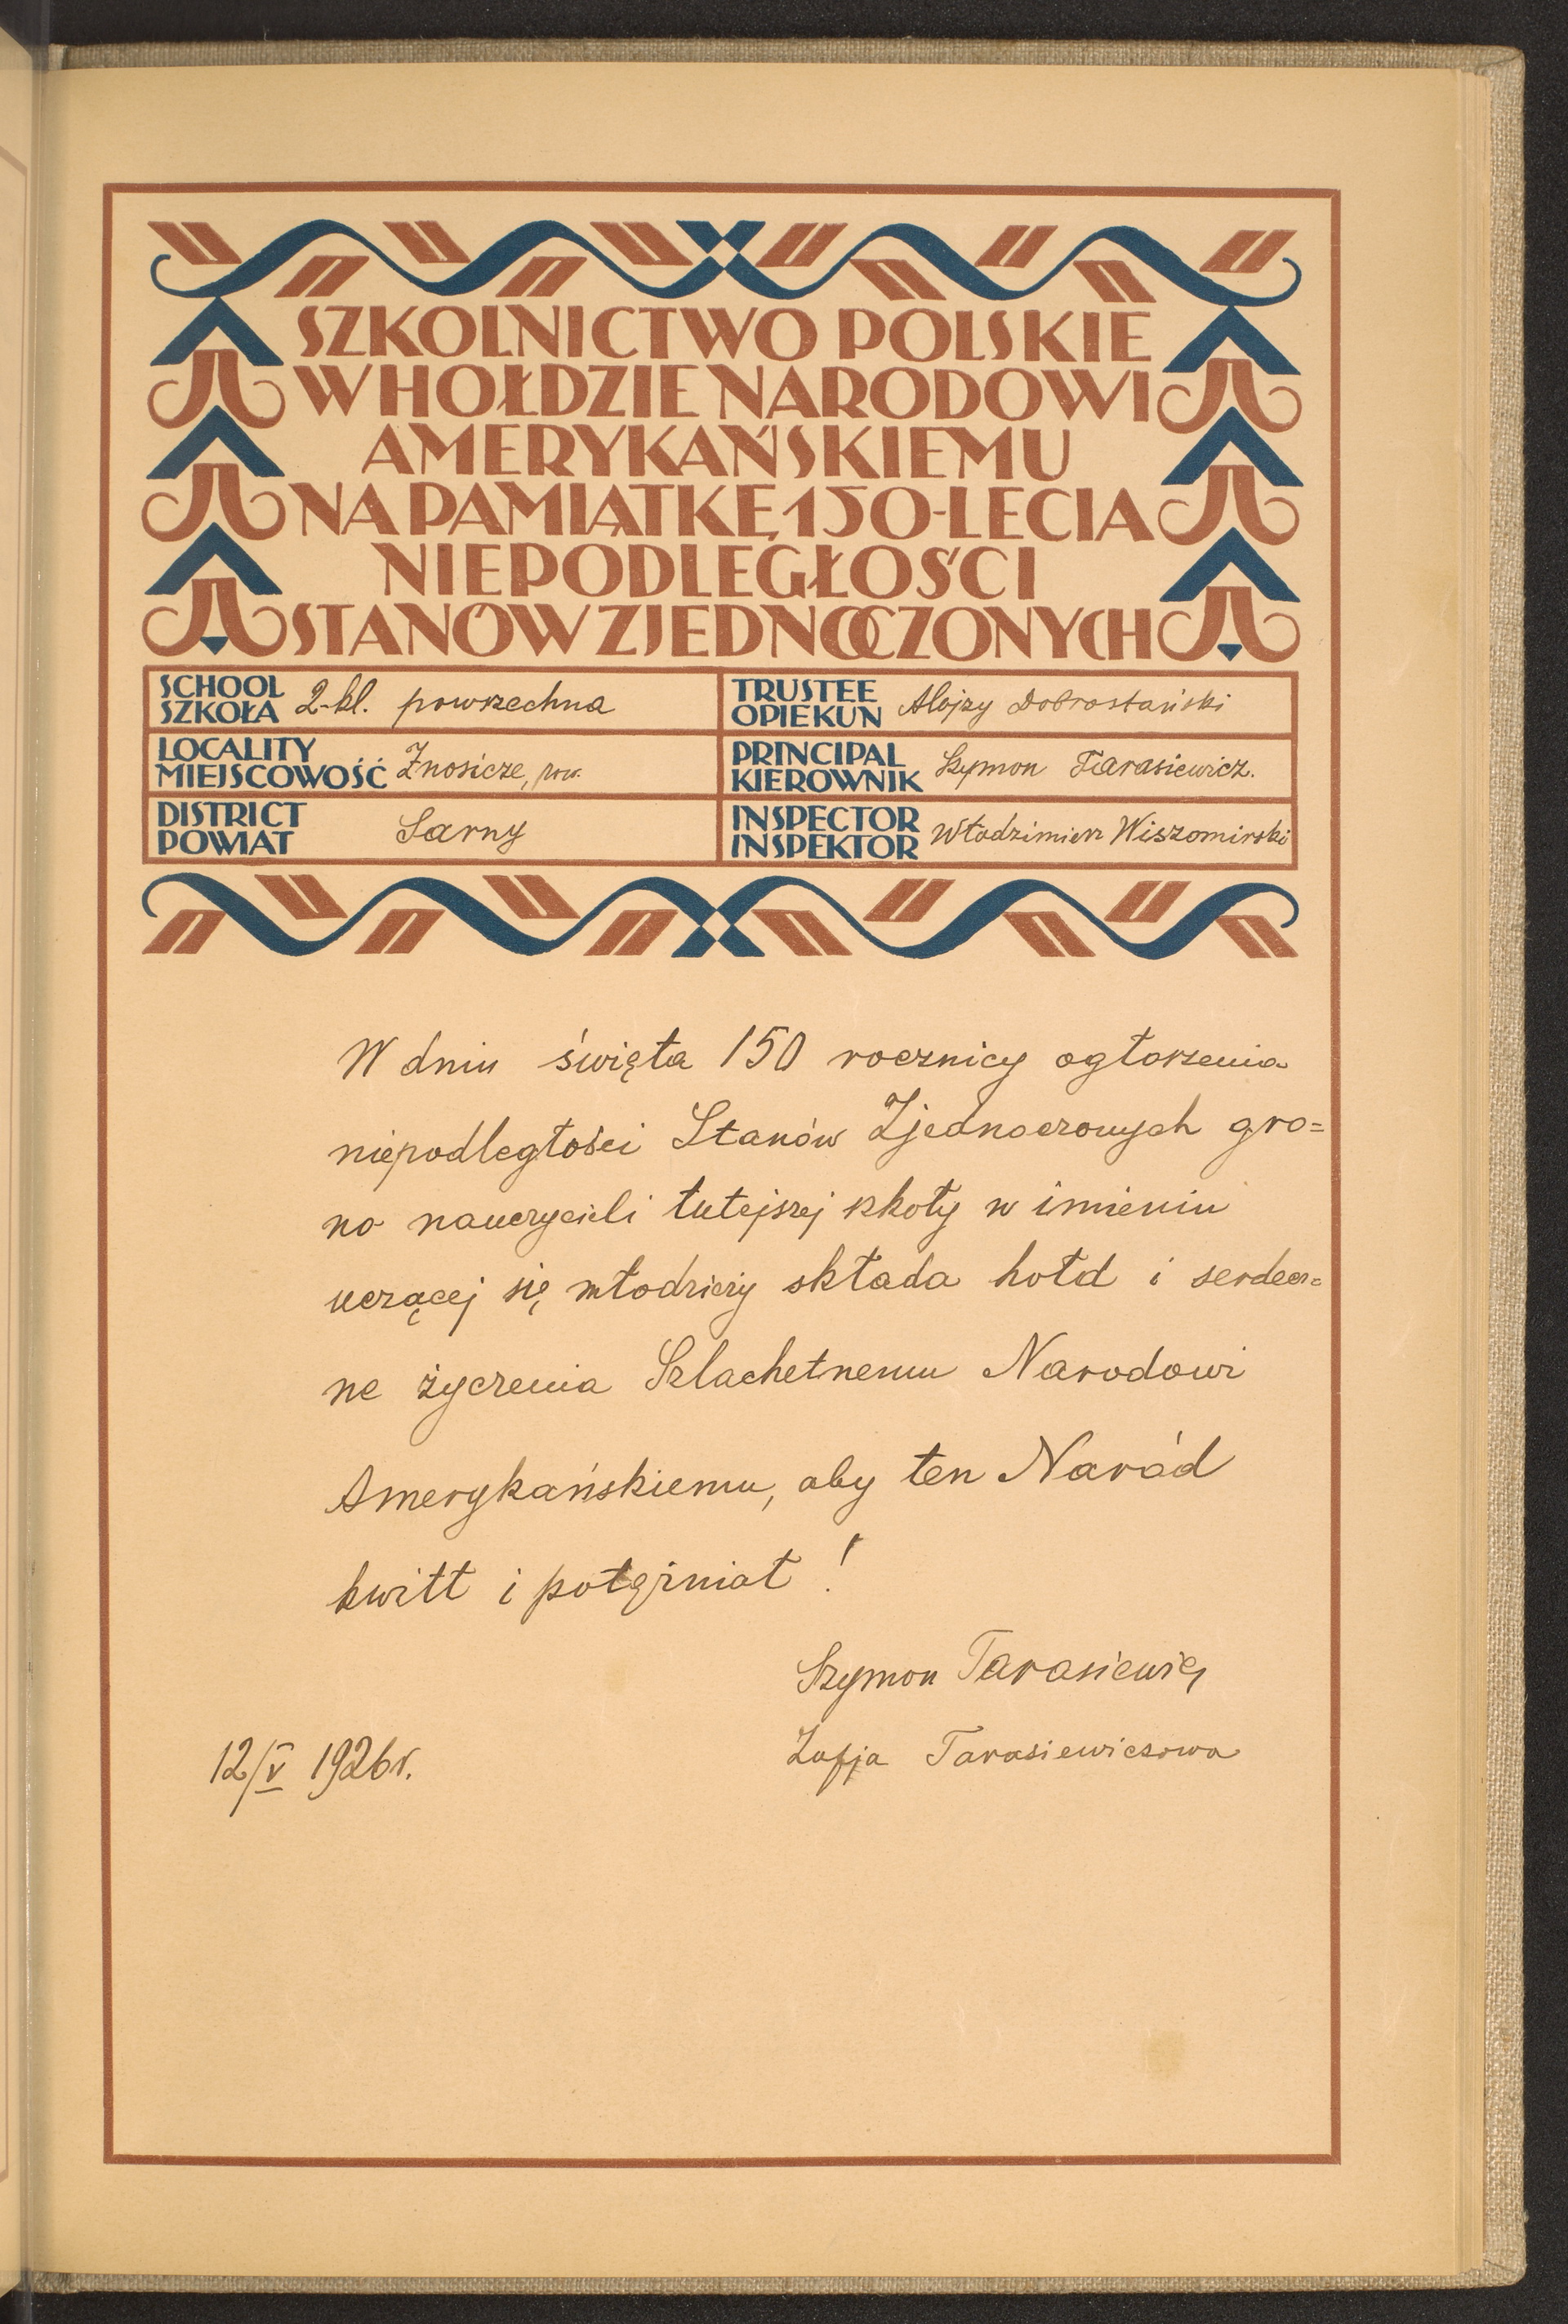 SZKOLNICTWO POLSKIE
W HOŁDZIE NARODOWI
AMERYKAŃSKIEMU
NA PAMIĄTKĘ 150-LECIA
NIEPODLEGŁOŚCI
STANÓW ZJEDNOCZONYCH
SCHOOL
SZKOŁA 2-kl. powszechna
TRUSTEE
OPIEKUN Alojzy Dobrostański
LOCALITY
MIEJSCOWOŚĆ Znosicze, pow.
PRINCIPAL
KIEROWNIK Szymon Tarasiewicz.
DISTRICT
POWIAT Sarny
INSPECTOR
INSPEKTOR Włodzimierz Wiszomirski
W dniu święta 150 rocznicy ogłoszenia
niepodległości Stanów Zjednoczonych gro=
no nauczycieli tutejszej szkoły w imieniu
uczącej się młodzieży składa hołd i serdecz=
ne życzenia Szlachetnemu Narodowi
Amerykańskiemu, aby ten Naród
kwitł i potężniał !
Szymon Tarasiewicz
Zofja Tarasiewiczowa
12/V 1926r.